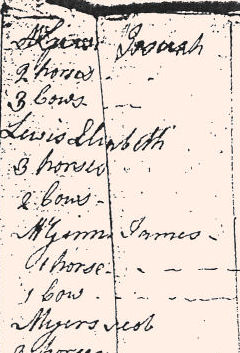 McGinnis Josiah
2 horses
3 Cows
Lewis Elizbeth
3 horses
2 Cows
McGinnis James
1 horse
1 Cow
Myers Jacob
2 horses